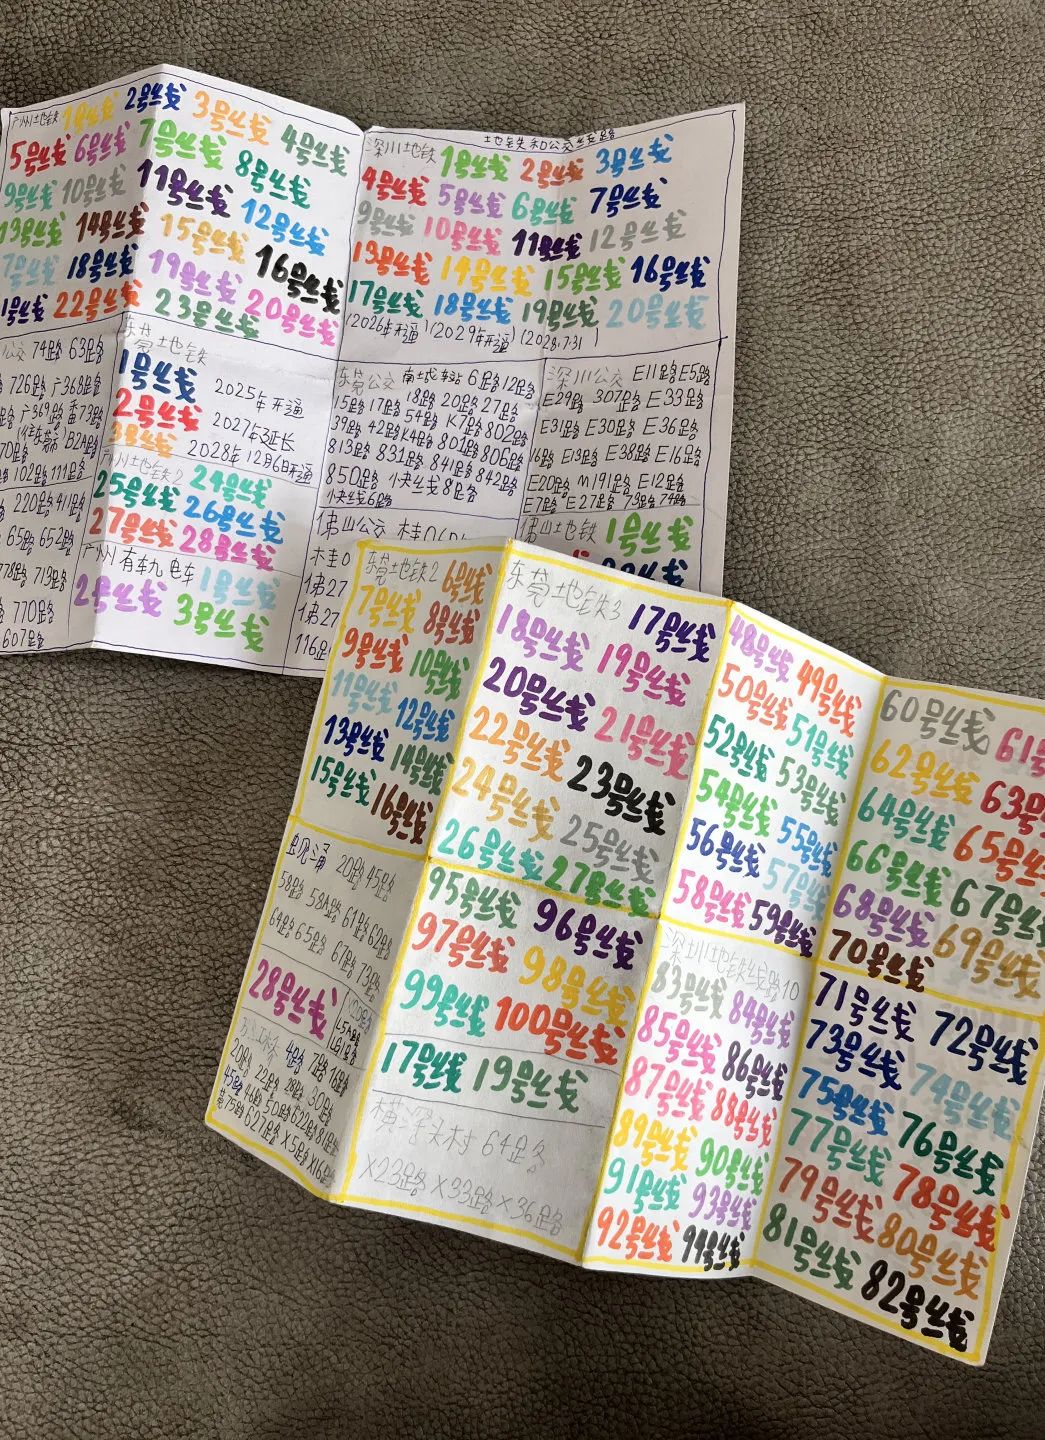 地铁和公交线路
广州地铁 1号线 2号线 3号线 4号线
5号线 6号线 7号线 8号线
9号线 10号线 11号线 12号线
13号线 14号线 15号线 16号线
7号线 18号线 19号线 20号线
1号线 22号线 23号线
深圳地铁 1号线 2号线 3号线
4号线 5号线 6号线 7号线
9号线 10号线 11号线 12号线
13号线 14号线 15号线 16号线
17号线 18号线 19号线 20号线
(2026年开通) (2029年开通) (2028.7.31)
公交 74路 63路
726路 广368路
广369路 番73路
B2A路
70路
102路 111路
220路 411路
05路 652路
778路 719路
770路
607路
东莞地铁
1号线 2025年开通
2号线 2027年3延长
3号线 2028年12月6日开通
广州地铁2 24号线
25号线 26号线
27号线 28号线
广州有轨电车 1号线
2号线 3号线
东莞公交 南城车站 6路 12路
15路 17路 18路 20路 27路
39路 42路 54路 K7路 802路
813路 831路 K4路 801路 806路
850路 841路 842路
小块线6路 小块线8路
深川公交 E11路 E5路
E29路 307路 E33路
E31路 E30路 E36路
16路 E13路 E38路 E16路
E20路 M191路 E12路
E7路 E27路 73路 74路
佛山公交 桂06路
桂0
佛27
佛27
116路
佛山地铁 1号线
东莞地铁2 6号线
7号线 8号线
9号线 10号线
11号线 12号线
13号线 14号线
15号线 16号线
东莞地铁3 17号线
18号线 19号线
20号线 21号线
22号线 23号线
24号线 25号线
26号线 27号线
48号线 49号线
50号线 51号线
52号线 53号线
54号线 55号线
56号线 57号线
58号线 59号线
60号线 61号
62号线 63号
64号线 65号线
66号线 67号线
68号线 69号线
70号线
20路 45路
58路 58A路 61路 62路
64路 65路 67路 73路
28号线
4路 7路 16路
20路 22路 28路 30路
45路 46路 50路 622路
627路 X5路 X16
95号线 96号线
97号线 98号线
99号线 100号线
17号线 19号线
横深头村 64路
X23路 X33路 X36路
深圳地铁线路10
83号线 84号线
85号线 86号线
87号线 88号线
89号线 90号线
91号线 93号线
92号线 94号线
71号线 72号线
73号线 74号线
75号线 76号线
77号线 78号线
79号线 80号线
81号线 82号线